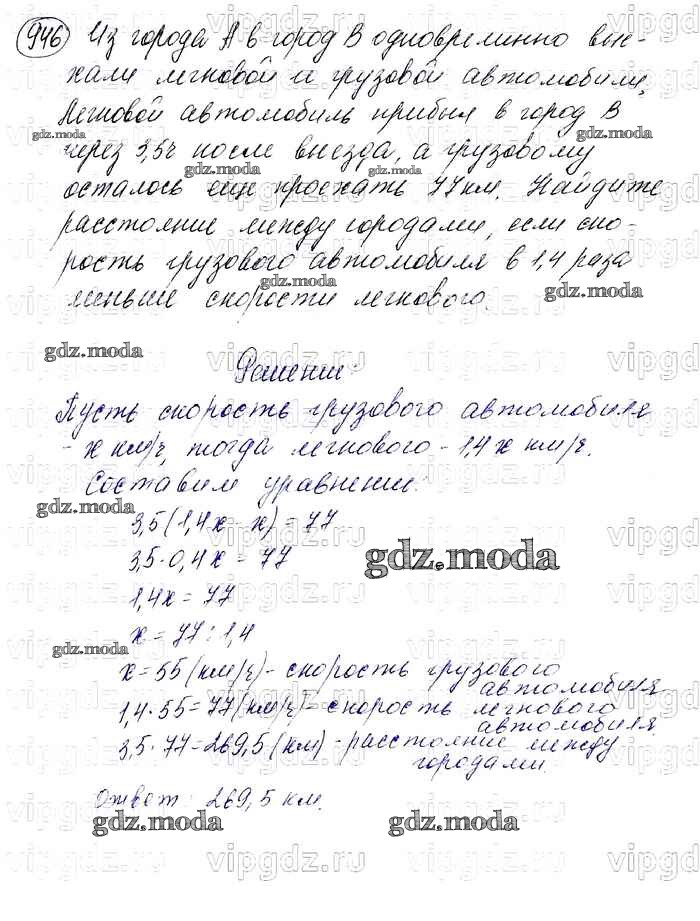 946 Из города А в город В одновременно вые-
хали легковой и грузовой автомобили.
Легковой автомобиль прибыл в город В
через 3,5ч после выезда, а грузовому
осталось еще проехать 77 км. Найдите
расстояние между городами, если ско-
рость грузового автомобиля в 1,4 раза
меньше скорости легкового.
Решение:
Пусть скорость грузового автомобиля
- х км/ч, тогда легкового - 1,4х км/ч.
Составим уравнение:
3,5(1,4х - х) = 77
3,5·0,4х = 77
1,4х = 77
х = 77 : 1,4
х = 55 (км/ч) - скорость грузового
автомобиля
1,4·55 = 77 (км/ч) - скорость легкового
автомобиля
3,5·77 = 269,5 (км) - расстояние между
городами.
Ответ: 269,5 км.
gdz.moda
vipgdz.ru